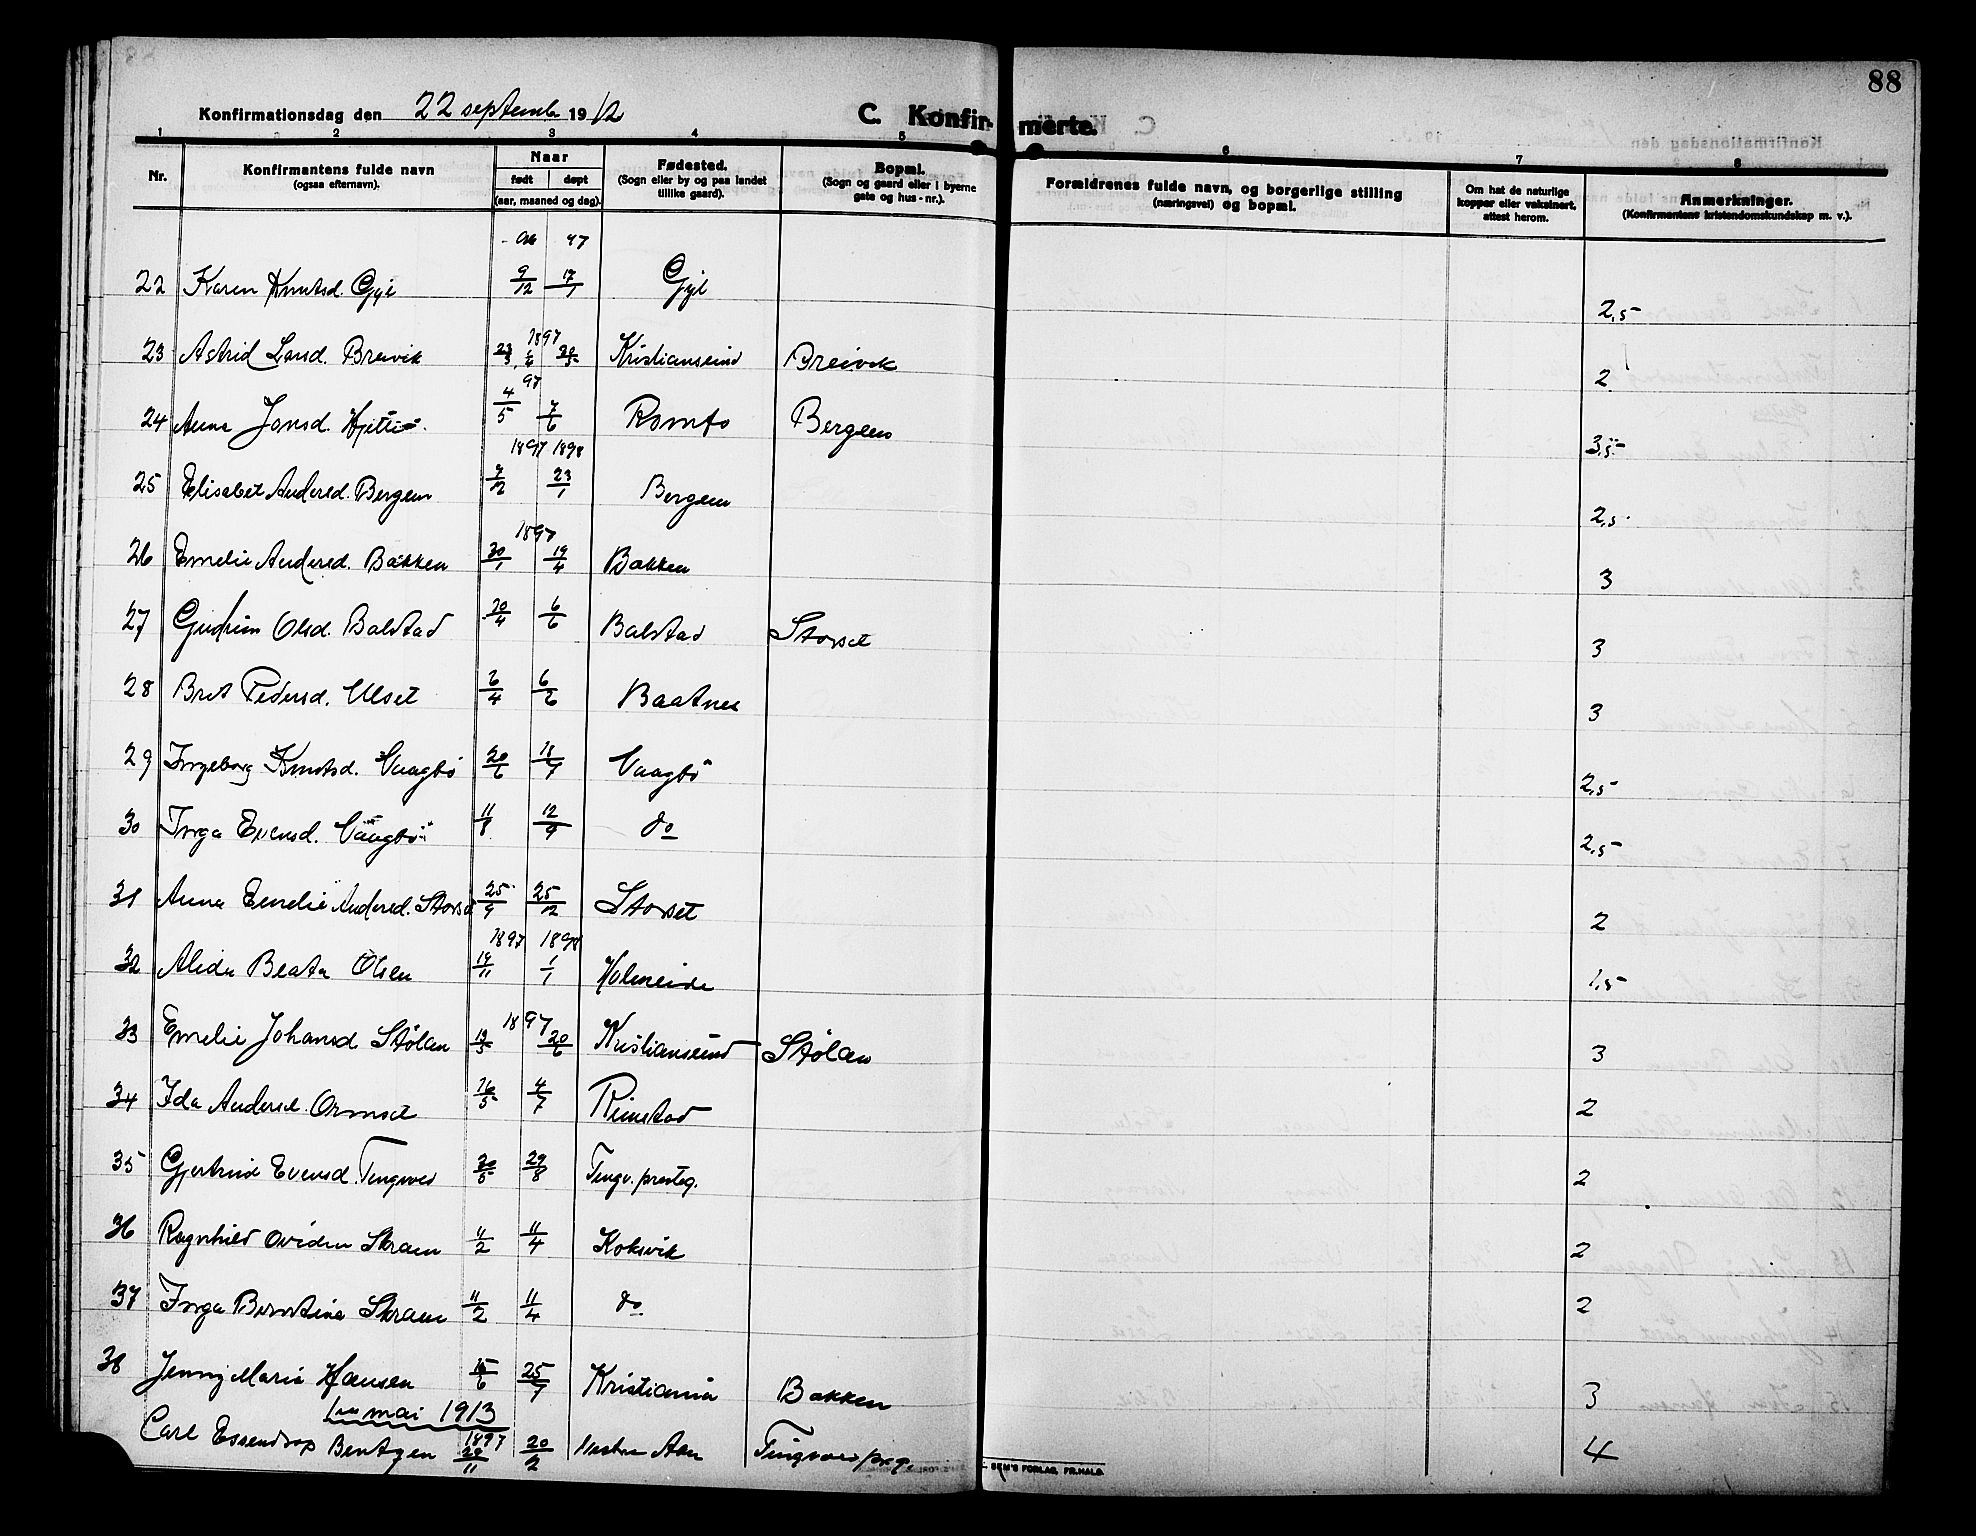 88
Konfirmationsdag den 22 septemb 1912
C. Konfirmerte.
1 2 3 4 5 6 7 8
Nr.
Konfirmantens fulde navn (ogsaa efternavn).
Naar født døpt (aar, maaned og dag).
Fødested. (Sogn eller by og paa landet tillike gaard).
Bopæl. (Sogn og gaard eller i byerne gate og hus-nr.).
Forældrenes fulde navn, og borgerlige stilling (næringsvei) og bopæl.
Om hat de naturlige kopper eller vaksinert, attest herom.
Anmerkninger. (Konfirmantens kristendomskundskap m. v.).
96 97
22 Karen Knutsd. Gyl 9/12 17/1 Gyl 2,5
1897
23 Astrid Larsd. Breivik 30/5 Kristiansund Breivik 2
97
24 Anna Jonsd. 4/5 7/6 Romfo Bergem 3,5
1897 1898
25 Elisabet Andersd. Bergem 7/12 23/1 Bergem 2,5
1897
26 Emelie Andersd. Bakken 30/1 19/4 Bakken 3
27 Gudrun Olsd. Balstad 20/4 6/6 Balstad Storset 3
28 Brit Pedersd. Ulset 6/4 6/6 Baatnes 3
29 Ingeborg Knutsd. Vaagbö 20/6 18/7 Vaagbö 2,5
30 Inga Evensd. Vaagbö 11/8 12/9 do 2,5
31 Anna Emelie Andersd. Storset 25/9 25/12 Storset 2
1897 1898
32 Alida Beata Olsen 19/11 1/1 Holmeide 1,5
1897
33 Emelie Johansd Stølan 13/5 20/6 Kristiansund Stølan 3
34 Ida Andersd. Ormset 16/5 4/7 Rimstad 2
35 Gjertrud Evensd. Tingvoll 30/5 29/8 Tingv. presteg. 2
36 Ragnhild Ovidia Skram 11/2 11/4 Koksvik 2
37 Inga Berntine Skram 11/2 11/4 do 2
38 Jenny Marie Hansen 15/6 25/7 Kristiania Bakken 3
mai 1913
1897
Carl Essendrop Bentzen 29/11 20/2 Vestre Aker Tingvoll prg. 4
SEM'S FORLAG, FR.HALD.